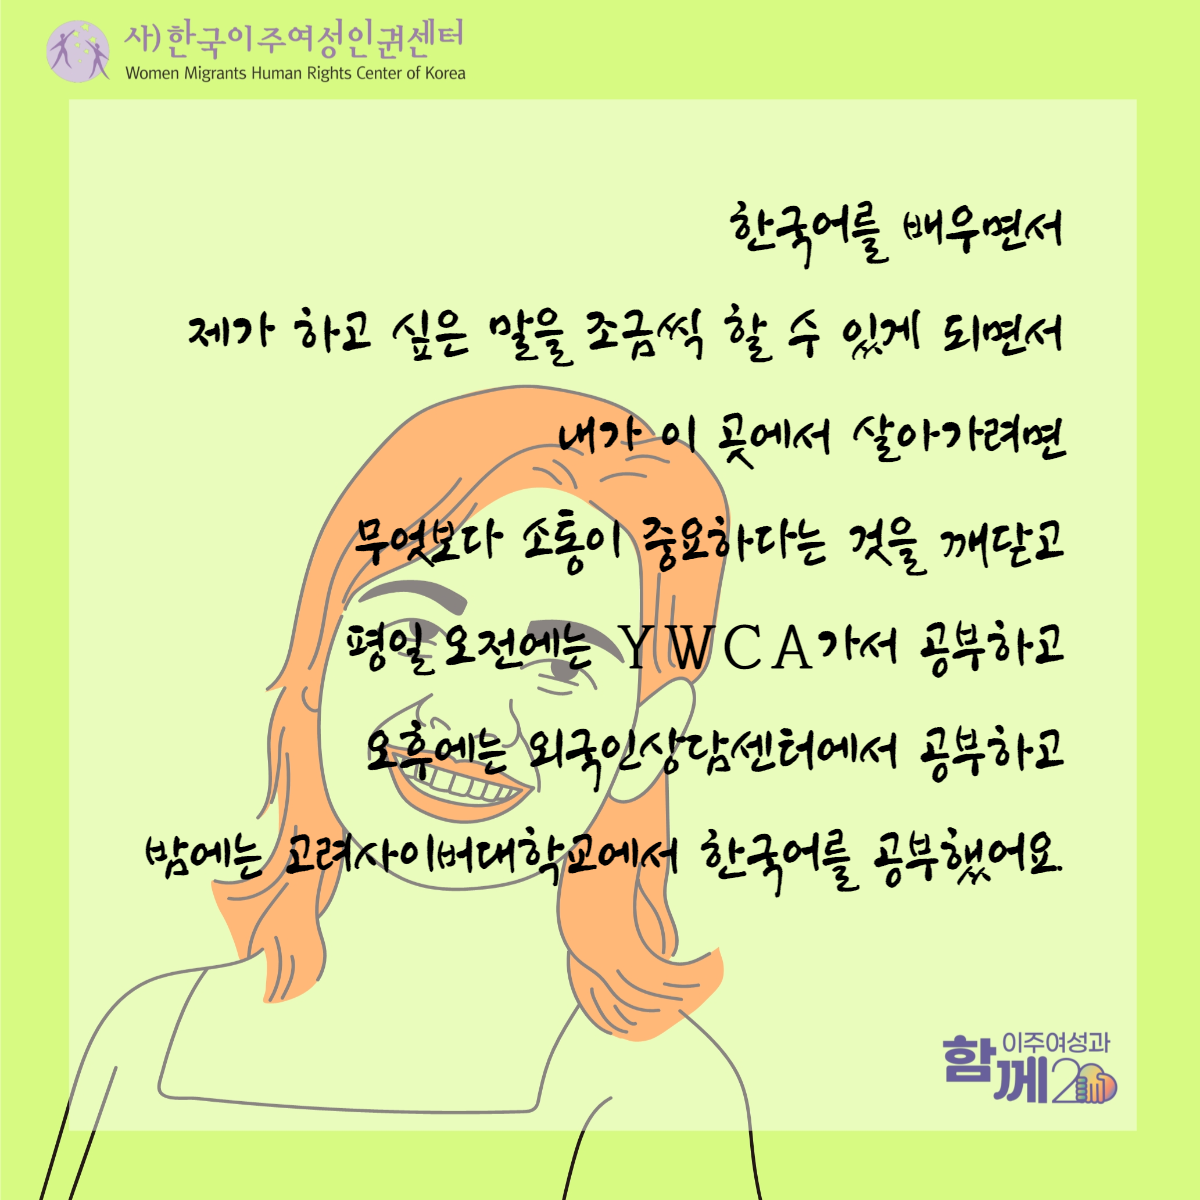 사)한국이주여성인권센터
Women Migrants Human Rights Center of Korea
한국어를 배우면서
제가 하고 싶은 말을 조금씩 할 수 있게 되면서
내가 이 곳에서 살아가려면
무엇보다 소통이 중요하다는 것을 깨닫고
평일 오전에는 YWCA가서 공부하고
오후에는 외국인상담센터에서 공부하고
밤에는 고려사이버대학교에서 한국어를 공부했어요.
이주여성과
함께20